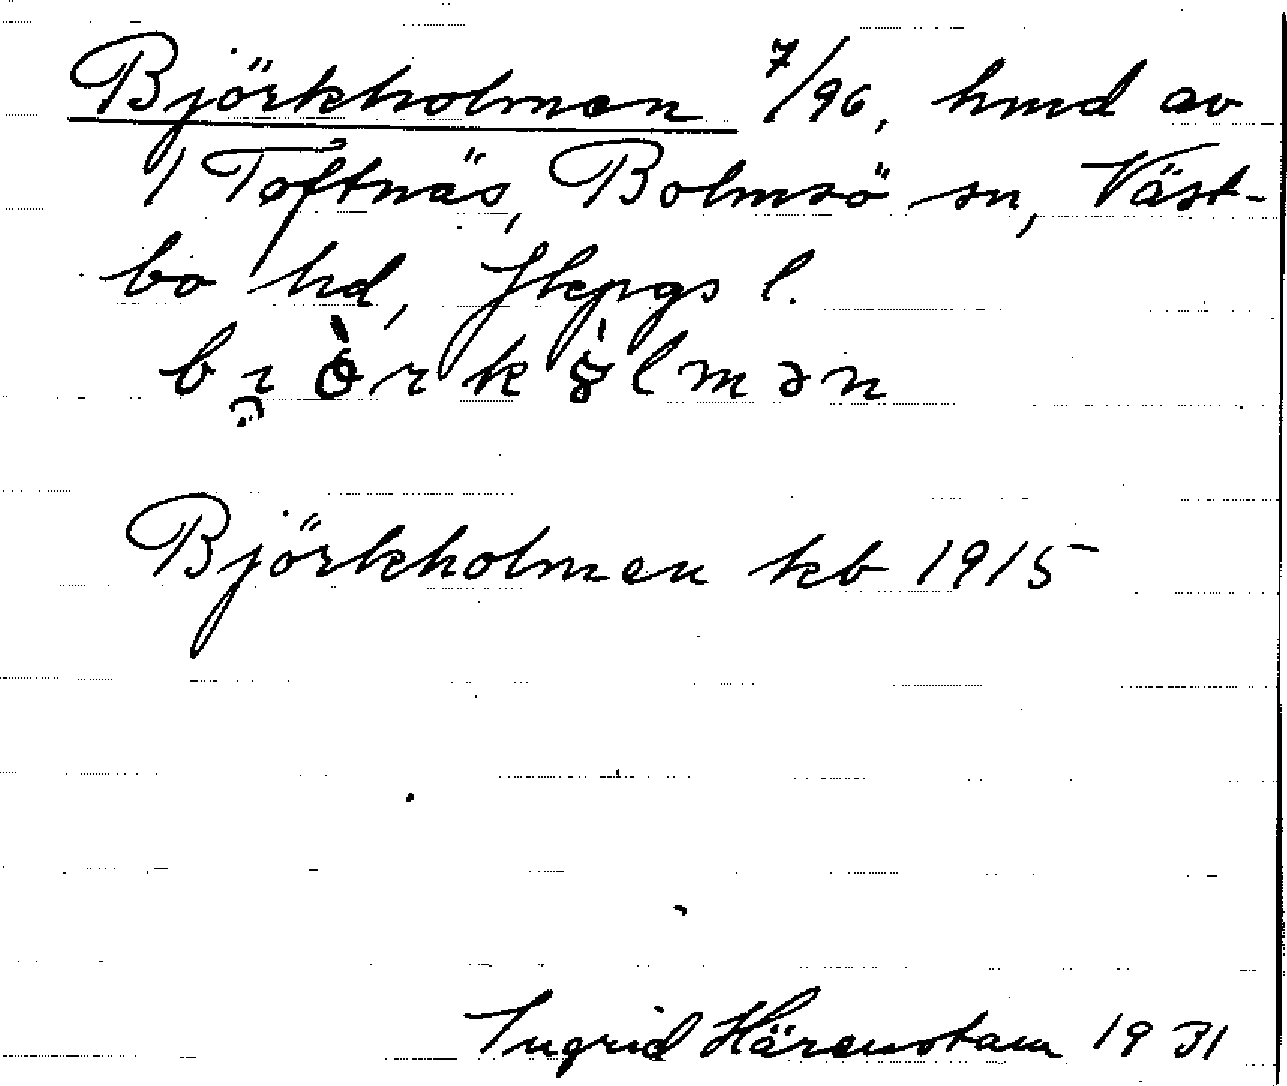 Björkholmen 7/96, hmd av
1 Toftnäs, Bolmsö sn, Väst-
bo hd, Jkpgs l.
Björkholmen kb 1915
Ingrid Härenstam 1931